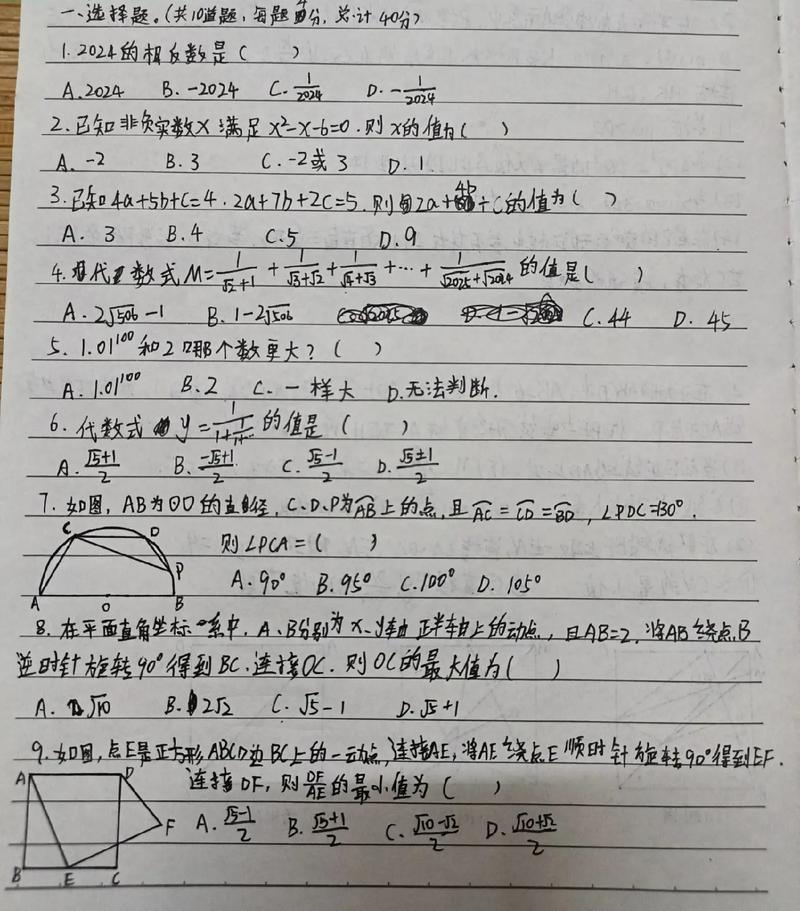 一、选择题。(共10道题,每题4分,总计40分)
1. 2024的相反数是( )
A. 2024 B. -2024 C. 1/2024 D. -1/2024
2. 已知非负实数x满足x²-x-6=0.则x的值为( )
A. -2 B. 3 C. -2或3 D. 1
3. 已知4a+5b+c=4, 2a+7b+2c=5.则2a+4b+c的值为( )
A. 3 B. 4 C. 5 D. 9
4. 代数式M=1/(√2+1)+1/(√3+√2)+1/(√4+√3)+…+1/(√2025+√2024)的值是( )
A. 2√506-1 B. 1-2√506 C. 44 D. 45
5. 1.01¹⁰⁰和2哪个数更大?( )
A. 1.01¹⁰⁰ B. 2 C. 一样大 D. 无法判断.
6. 代数式y=1/(1+1/(1+…的值是( )
A. (√5+1)/2 B. (-√5+1)/2 C. (√5-1)/2 D. (√5±1)/2
7. 如图,AB为⊙O的直径,C、D、P为AB上的点,且AC=CD=BD,∠PDC=130°.
则∠PCA=( )
A. 90° B. 95° C. 100° D. 105°
C D P A O B
8. 在平面直角坐标系中,A、B分别为x、y轴正半轴上的动点,且AB=2,将AB绕点B
逆时针旋转90°得到BC.连接OC.则OC的最大值为( )
A. √10 B. 2√2 C. √5-1 D. √5+1
9. 如图,点E是正方形ABCD边BC上的一动点,连接AE,将AE绕点E顺时针旋转90°得到EF.
连接DF,则DF/AE的最小值为( )
A. (√5-1)/2 B. (√5+1)/2 C. (√10-√2)/2 D. (√10+√2)/2
A D F B E C